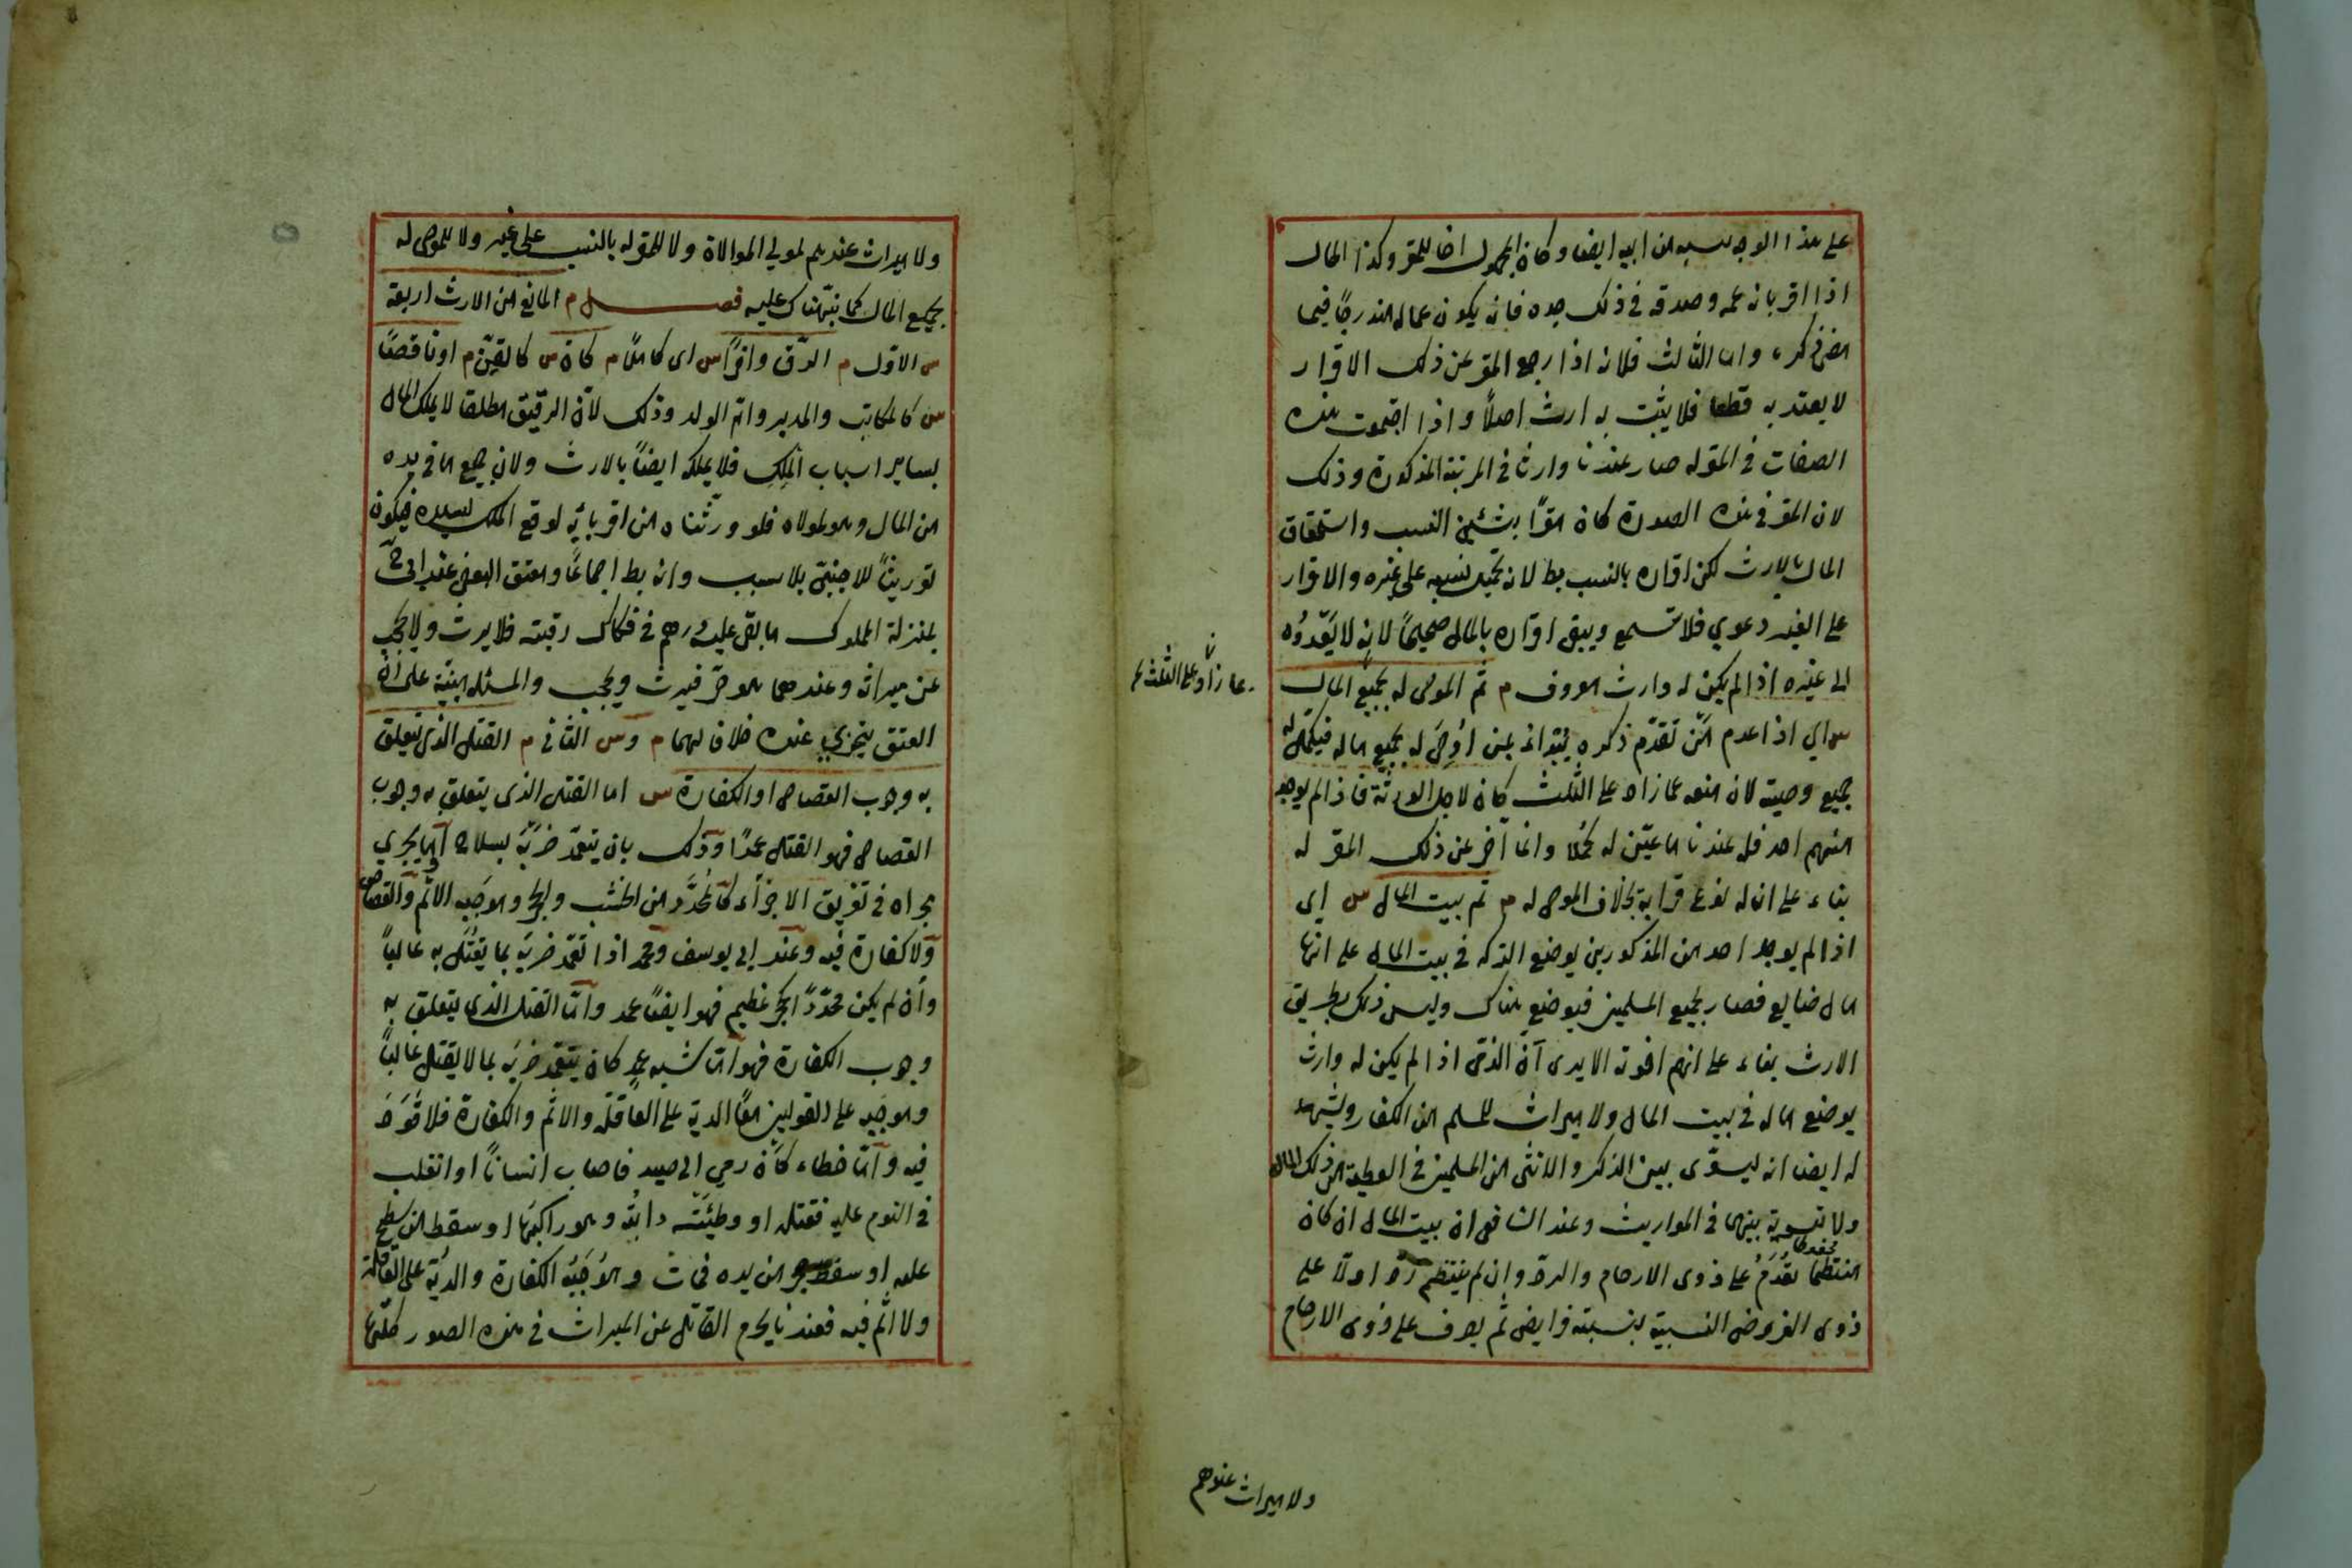 على هذا الوجه نسبه من ابيه ايضا وكان المجهول اخا للمقر وكذا الحال
اذا اقر بانه عمه وصدقه في ذلك جده فانه يكون عما له مندرجًا فيما
مضى ذكره واما الثالث فلانه اذا رجع المقر عن ذلك الاقرار
لا يعتد به قطعا فلا يثبت به ارث اصلًا واذا اجتمعت هذه
الصفات في المقر له صار عندنا وارثا في المرتبة المذكورة وذلك
لان المقر في هذه الصورة كان مقرًا بشئين النسب واستحقاق
المال بالارث لكن اقراره بالنسب بط لانه تحميل نسبه على غيره والاقرار
على الغير دعوي فلا تسمع ويبقى اقراره بالمال صحيحًا لانه لا يَعْدُوه
الى غيره اذا لم يكن له وارث معروف م ثم الموصى له بجميع المال
س اي اذا عدم مَن تقدّم ذكره يُبتدأ بمن اُوصِيَ له بجميع ماله فيكمل له
جميع وصيته لان منعه عما زاد على الثلث كان لاجل الورثة فاذا لم يوجد
منهم احد فله عندنا ما عيّن له كملا وانما أخر عن ذلك المقر له
بناء على ان له نوع قرابة بخلاف الموصى له م ثم بيت المال س اي
اذا لم يوجد احد من المذكورين يوضع التركه في بيت المال على انها
مال ضايع فصار لجميع المسلمين فيوضع هناك وليس ذلك بطريق
الارث بناء على انهم اخوة الا يرى أن الذمى اذا لم يكن له وارث
يوضع ماله في بيت المال ولا ميراث للمسلم من الكفار ويشهد
له ايضا انه ليسوّى بين الذكر والانثى من المسلمين في العطية من ذلك المال
ولا تسوية بينهما في المواريث وعند الشافعي ان بيت المال ان كان
منتظما يُقدَّمُ على ذوى الارحام والرد وإن لم ينتظم رُدَّ اولًا على
ذوى الفروض النسبية بنسبته فرايض ثم يصرف على ذوى الارحام
عما زاد على الثلث
ولا ميراث عندهم
ولا ميراث عندهم لمولي الموالاة ولا للمقر له بالنسب على غير ولا للموصى له
بجميع المال كما نبّهناك عليه فصل م المانع من الارث اربعة
س الاول م الرّق وافرًا س اى كاملًا م كان س كالقِنّ م او ناقصًا
س كالمكاتب والمدبر وام الولد وذلك لأن الرقيق مطلقا لا يملك المال
بساير اسباب المِلكِ فلا يملكه ايضاً بالارث ولان جميع ما في يده
من المال وهو لمولاه فلو ورّثناه من اقربائِه لوقع الملك لسيده فيكون
توريثاً للاجنبيّ بلا سبب وانه بط اجماعًا ومعتق البعض عند ابى ح
بمنزلة المملوك ما بقى عليه درهم في فكاك رقبته فلا يرث ولا يحجب
عن ميراثه وعندهما هو حرّ فيرث ويحجب والمسئله مبنيّة على ان
العتق يتجزي عنده خلافا لهما م وس الثاني م القتل الذى يتعلق
به وجوب القصاص او الكفارة س اما القتل الذى يتعلق به وجوب
القصاص فهو القتل عمدًا وذلك بان يتعمّد ضَربَهُ بسلاح او ما يجري
مجراه في تفريق الاجزاء كالمُحدَّد من الخشب والحجر وموجَبه الاثم والقصاص
ولا كفارة فيه وعند ابي يوسف ومحمد اذا تعمّد ضربَه بما يقتُل به غالبًا
وإن لم يكن محدّدًا كحجر عظيم فهو ايضًا عمد وأمّا القتل الذى يتعلق به
وجوب الكفارة فهو امّا شبه عمد كان يتعمّد ضربَه بما لا يقتل غالبًا
وموجَبه على القولين معًا الدية على العاقلة والاثم والكفارة فلا قَوَدَ
فيه وأمّا خطاء كأن رمي الى صيد فاصاب انسانًا او انقلب
في النوم عليه فقتله او وطِئَتْه دابته وهو راكبَها او سقط من سطح
عليه او سقط حجر من يده فمات وموجَبُه الكفارة والديّة على العاقلة
ولا اثم فيه فعندنا يحرم القاتل عن الميراث في هذه الصور كلّها